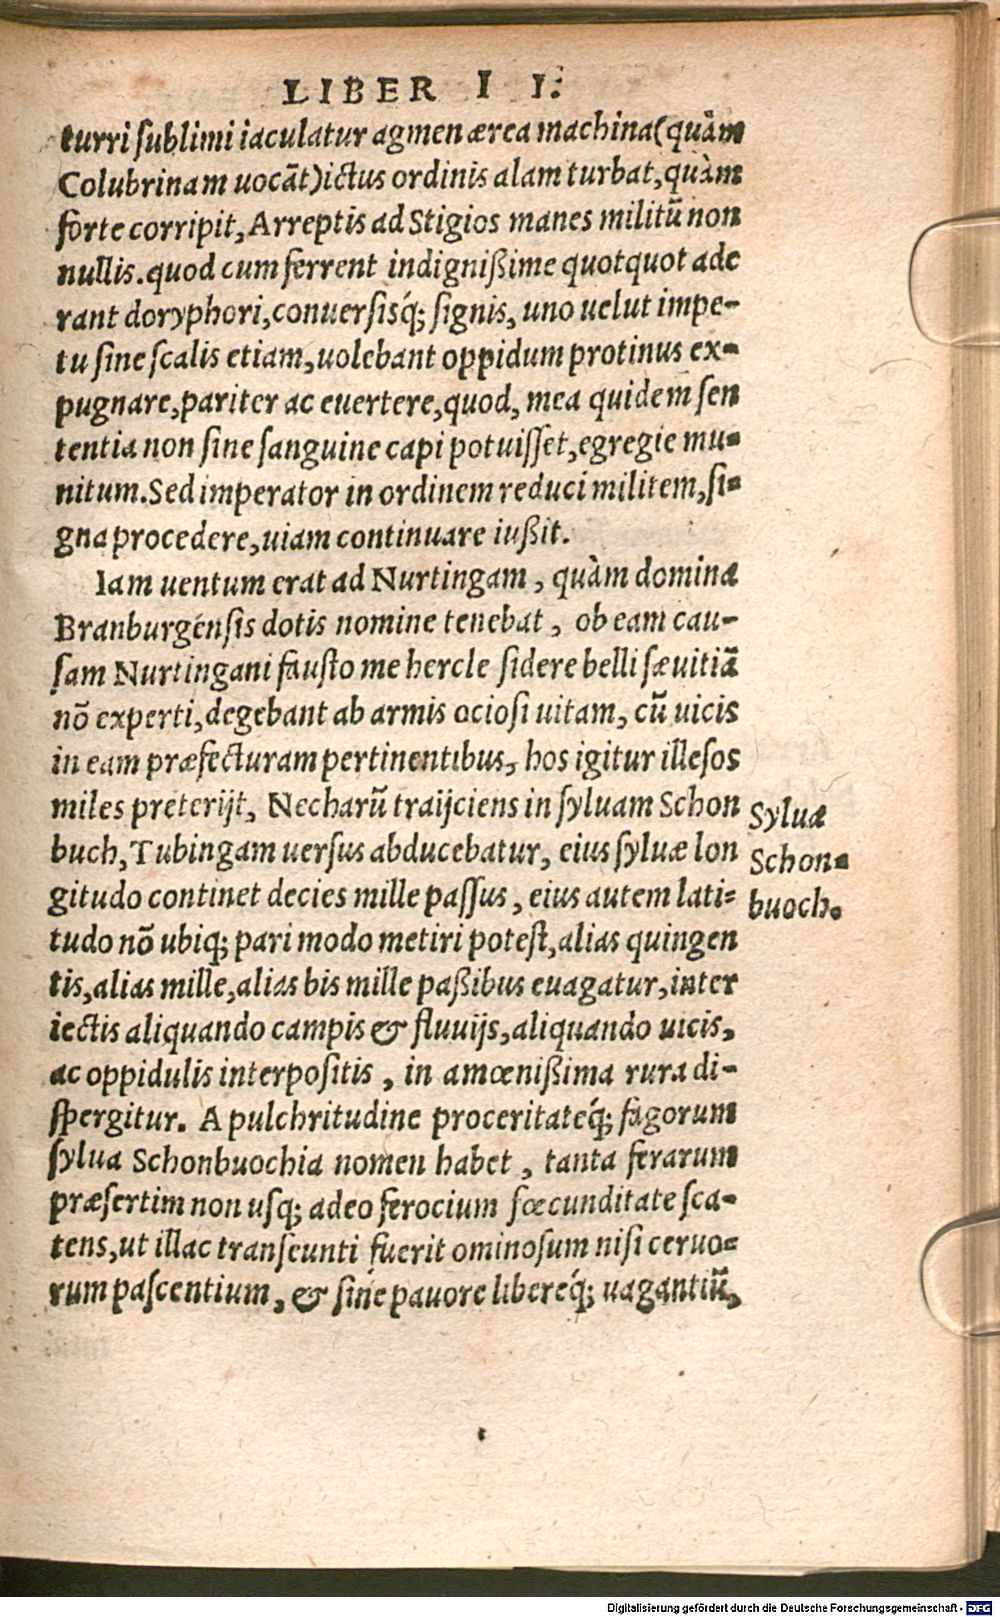 LIBER II.
turri sublimi iaculatur agmen ærea machina (quàm
Colubrinam uocāt) ictus ordinis alam turbat, quàm
forte corripit, Arreptis ad Stigios manes militū non
nullis. quod cum ferrent indignißime quotquot ade
rant doryphori, conuersisq́; signis, uno uelut impe-
tu sine scalis etiam, uolebant oppidum protinus ex-
pugnare, pariter ac euertere, quod, mea quidem sen
tentia non sine sanguine capi potuisset, egregie mu-
nitum. Sed imperator in ordinem reduci militem, si-
gna procedere, uiam continuare iußit.
Iam uentum erat ad Nurtingam, quàm domina
Branburgensis dotis nomine tenebat, ob eam cau-
sam Nurtingani fausto me hercle sidere belli sæuitiā
nō experti, degebant ab armis ociosi uitam, cū uicis
in eam præfecturam pertinentibus, hos igitur illesos
miles preterijt, Necharū traijciens in syluam Schon
buch, Tubingam uersus abducebatur, eius syluæ lon
gitudo continet decies mille passus, eius autem lati-
tudo nō ubiq; pari modo metiri potest, alias quingen
tis, alias mille, alias bis mille paßibus euagatur, inter
iectis aliquando campis & fluuijs, aliquando uicis,
ac oppidulis interpositis, in amœnißima rura di-
spergitur. A pulchritudine proceritateq́; fagorum
sylua Schonbuochia nomen habet, tanta ferarum
præsertim non usq; adeo ferocium fœcunditate sca-
tens, ut illac transeunti fuerit ominosum nisi ceruo-
rum pascentium, & sine pauore libereq́; uagantiū,
Syluæ
Schon-
buoch.
Digitalisierung gefördert durch die Deutsche Forschungsgemeinschaft - DFG